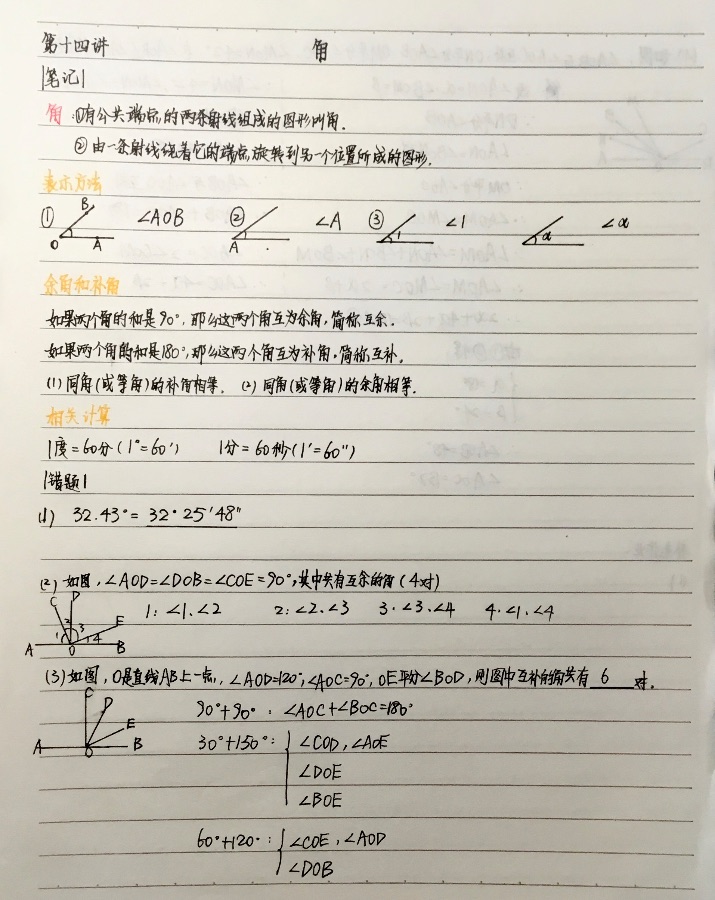 第十四讲 角
|笔记|
角:①有公共端点的两条射线组成的图形叫角.
②由一条射线绕着它的端点旋转到另一个位置所成的图形.
表示方法
① B O A ∠AOB ② A ∠A ③ 1 ∠1 α ∠α
余角和补角
如果两个角的和是90°,那么这两个角互为余角,简称互余.
如果两个角的和是180°,那么这两个角互为补角,简称互补.
(1)同角(或等角)的补角相等. (2)同角(或等角)的余角相等.
相关计算
1度=60分(1°=60′) 1分=60秒(1′=60″)
|错题|
(1) 32.43°=32°25′48″
(2)如图,∠AOD=∠DOB=∠COE=90°,其中共有互余的角(4对)
1:∠1.∠2 2:∠2.∠3 3.∠3.∠4 4.∠1.∠4
C D E 1 2 3 4 A O B
(3)如图,O是直线AB上一点,∠AOD=120°,∠AOC=90°,OE平分∠BOD,则图中互补的角共有 6 对.
C D E A O B
90°+90°:∠AOC+∠BOC=180°
30°+150°:{∠COD,∠AOE
∠DOE
∠BOE
60°+120°:{∠COE,∠AOD
∠DOB